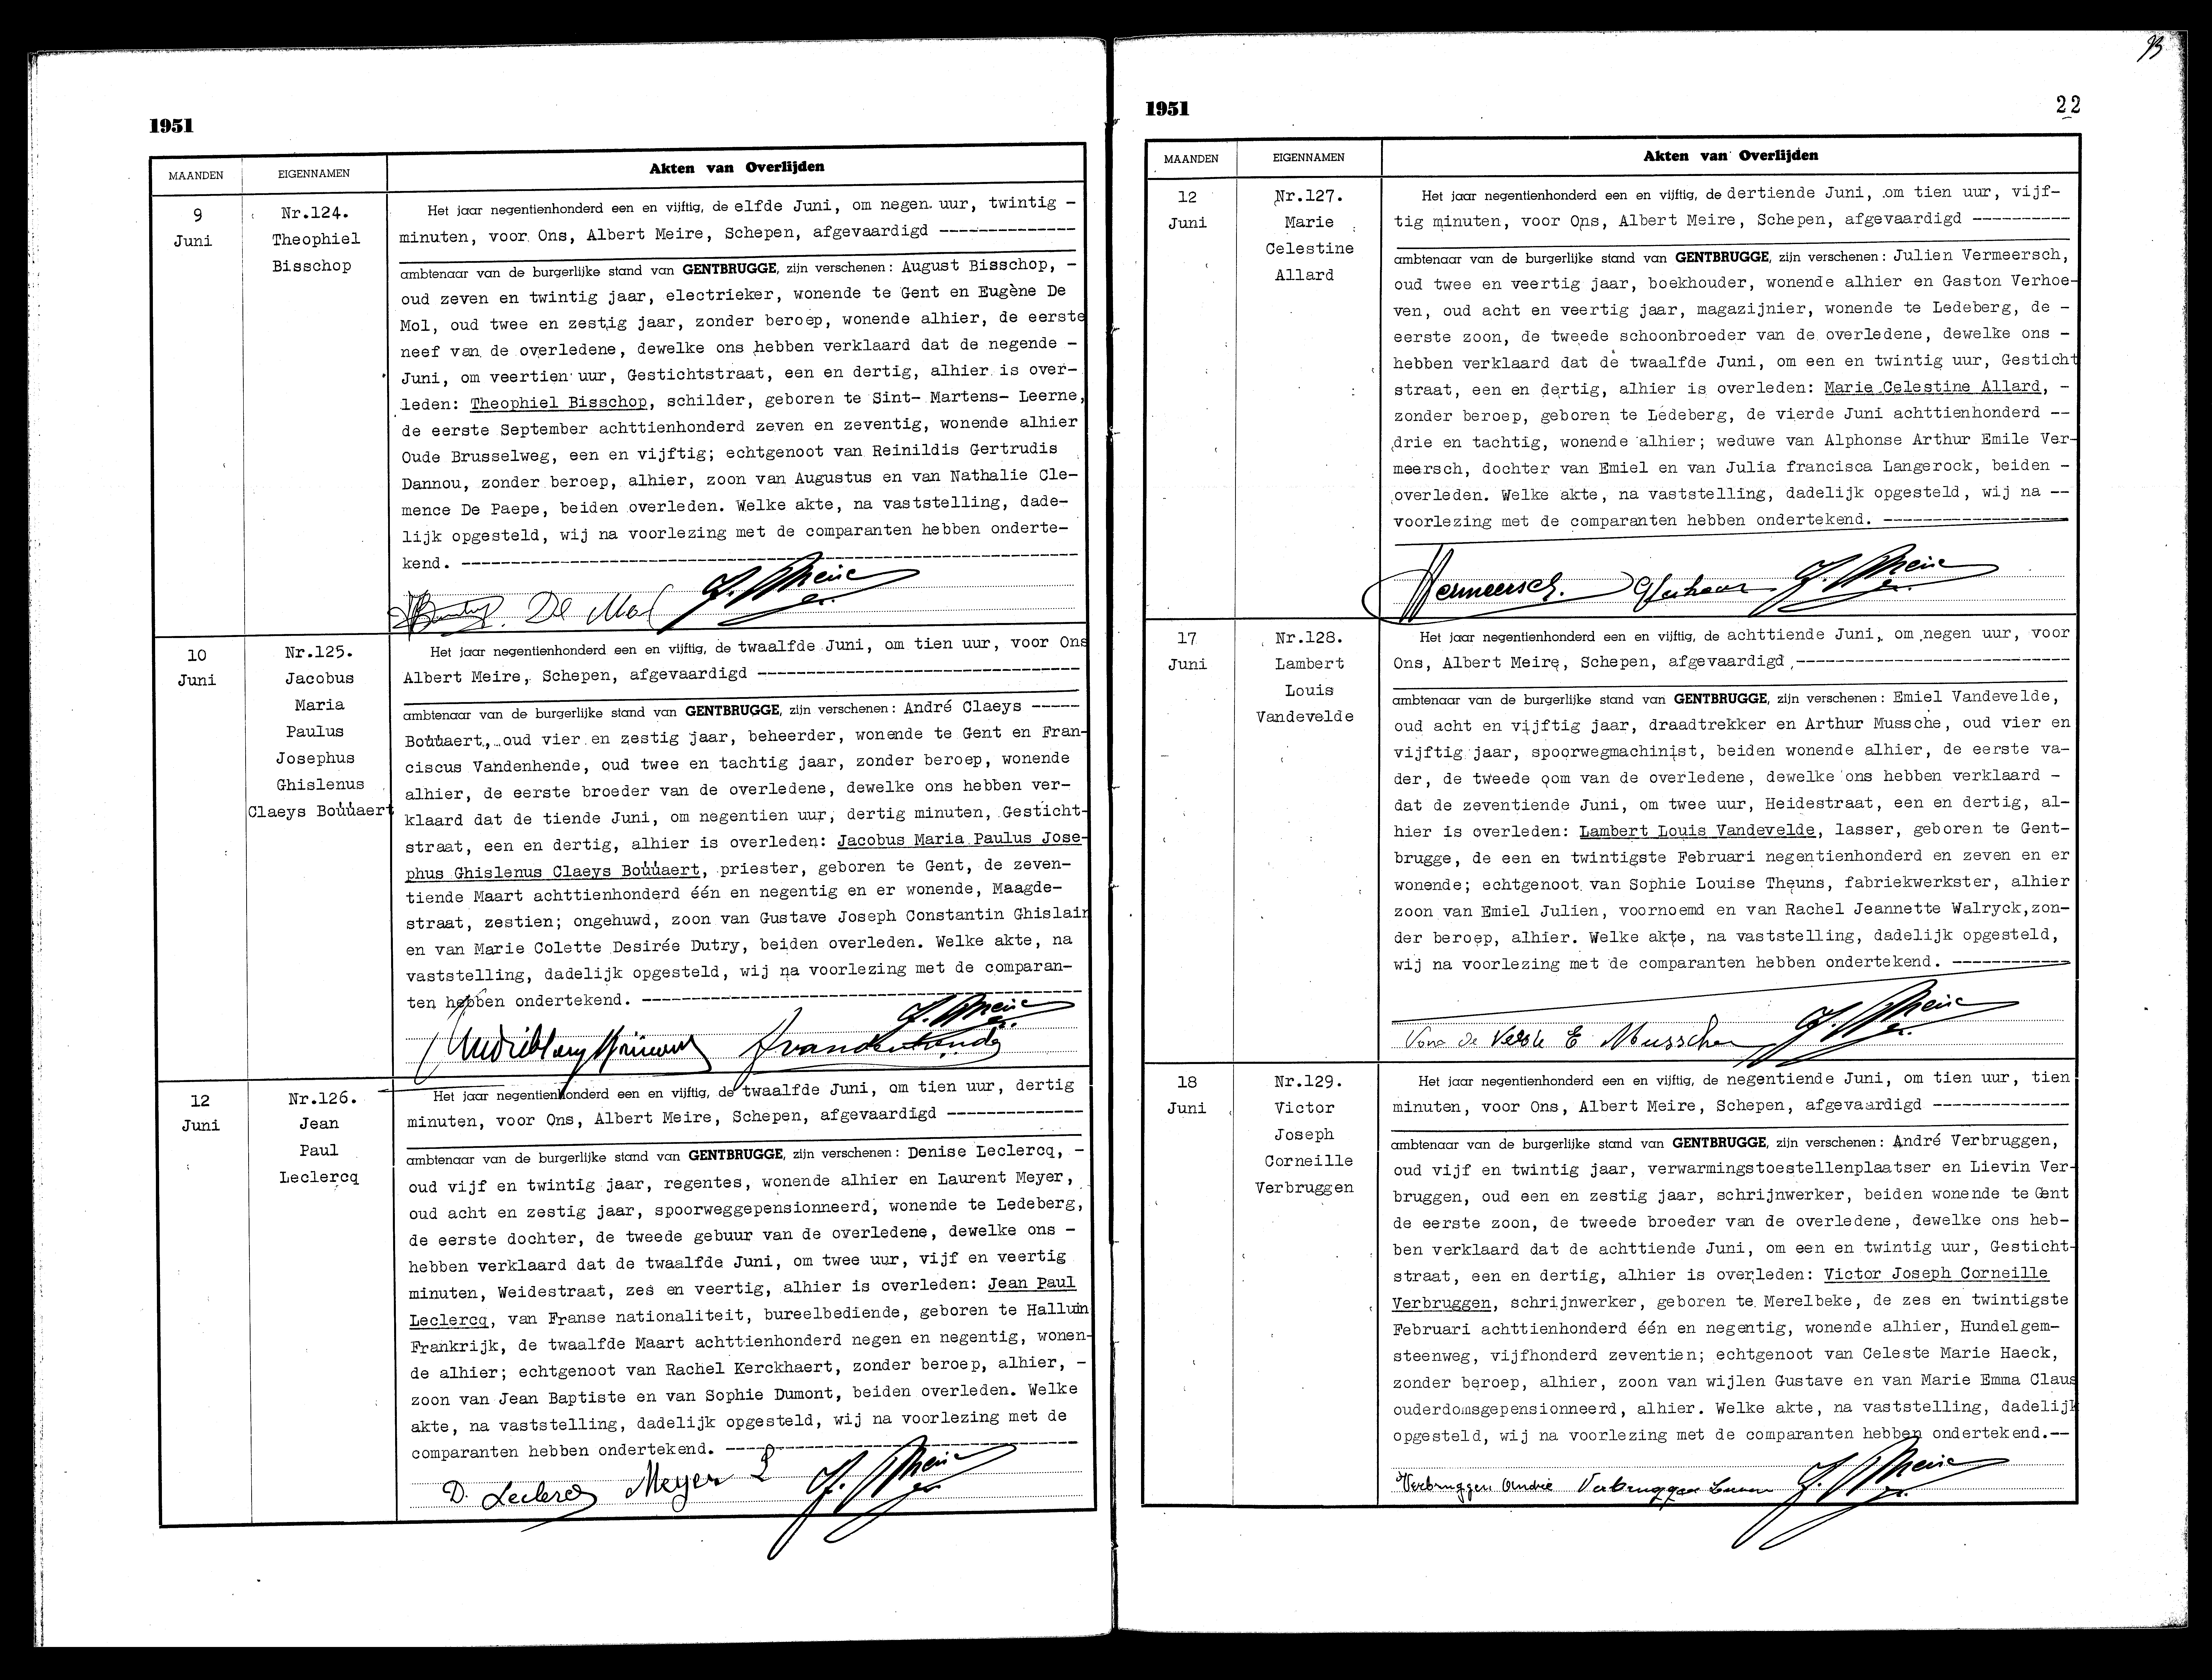 1951
MAANDEN
EIGENNAMEN
Akten van Overlijden
9
Juni
Nr.124.
Theophiel
Bisschop
Het jaar negentienhonderd een en vijftig, de elfde Juni, om negen uur, twintig -
minuten, voor Ons, Albert Meire, Schepen, afgevaardigd --------------
ambtenaar van de burgerlijke stand van GENTBRUGGE, zijn verschenen: August Bisschop, -
oud zeven en twintig jaar, electrieker, wonende te Gent en Eugène De
Mol, oud twee en zestig jaar, zonder beroep, wonende alhier, de eerste
neef van de overledene, dewelke ons hebben verklaard dat de negende -
Juni, om veertien uur, Gestichtstraat, een en dertig, alhier is over-
leden: Theophiel Bisschop, schilder, geboren te Sint- Martens- Leerne,
de eerste September achttienhonderd zeven en zeventig, wonende alhier
Oude Brusselweg, een en vijftig; echtgenoot van Reinildis Gertrudis
Dannou, zonder beroep, alhier, zoon van Augustus en van Nathalie Cle-
mence De Paepe, beiden overleden. Welke akte, na vaststelling, dade-
lijk opgesteld, wij na voorlezing met de comparanten hebben onderte-
kend. --------------------------------------------------------------
De Mol A. Meire
10
Juni
Nr.125.
Jacobus
Maria
Paulus
Josephus
Ghislenus
Claeys Boùùaert
Het jaar negentienhonderd een en vijftig, de twaalfde Juni, om tien uur, voor Ons
Albert Meire, Schepen, afgevaardigd ---------------------------------
ambtenaar van de burgerlijke stand van GENTBRUGGE, zijn verschenen: André Claeys -----
Boùùaert, oud vier en zestig jaar, beheerder, wonende te Gent en Fran-
ciscus Vandenhende, oud twee en tachtig jaar, zonder beroep, wonende
alhier, de eerste broeder van de overledene, dewelke ons hebben ver-
klaard dat de tiende Juni, om negentien uur, dertig minuten, Gesticht-
straat, een en dertig, alhier is overleden: Jacobus Maria Paulus Jose-
phus Ghislenus Claeys Boùùaert, priester, geboren te Gent, de zeven-
tiende Maart achttienhonderd één en negentig en er wonende, Maagde-
straat, zestien; ongehuwd, zoon van Gustave Joseph Constantin Ghislain
en van Marie Colette Desirée Dutry, beiden overleden. Welke akte, na
vaststelling, dadelijk opgesteld, wij na voorlezing met de comparan-
ten hebben ondertekend. --------------------------------------------
A. Meire
Vandenhende
12
Juni
Nr.126.
Jean
Paul
Leclercq
Het jaar negentienhonderd een en vijftig, de twaalfde Juni, om tien uur, dertig
minuten, voor Ons, Albert Meire, Schepen, afgevaardigd --------------
ambtenaar van de burgerlijke stand van GENTBRUGGE, zijn verschenen: Denise Leclercq, -
oud vijf en twintig jaar, regentes, wonende alhier en Laurent Meyer,
oud acht en zestig jaar, spoorweggepensionneerd, wonende te Ledeberg,
de eerste dochter, de tweede gebuur van de overledene, dewelke ons -
hebben verklaard dat de twaalfde Juni, om twee uur, vijf en veertig
minuten, Weidestraat, zes en veertig, alhier is overleden: Jean Paul
Leclercq, van Franse nationaliteit, bureelbediende, geboren te Halluin
Frankrijk, de twaalfde Maart achttienhonderd negen en negentig, wonen-
de alhier; echtgenoot van Rachel Kerckhaert, zonder beroep, alhier, -
zoon van Jean Baptiste en van Sophie Dumont, beiden overleden. Welke
akte, na vaststelling, dadelijk opgesteld, wij na voorlezing met de
comparanten hebben ondertekend. ------------------------------------
D. Leclercq Meyer L A. Meire
1951
22
MAANDEN
EIGENNAMEN
Akten van Overlijden
12
Juni
Nr.127.
Marie
Celestine
Allard
Het jaar negentienhonderd een en vijftig, de dertiende Juni, om tien uur, vijf-
tig minuten, voor Ons, Albert Meire, Schepen, afgevaardigd ----------
ambtenaar van de burgerlijke stand van GENTBRUGGE, zijn verschenen: Julien Vermeersch,
oud twee en veertig jaar, boekhouder, wonende alhier en Gaston Verhoe-
ven, oud acht en veertig jaar, magazijnier, wonende te Ledeberg, de -
eerste zoon, de tweede schoonbroeder van de overledene, dewelke ons -
hebben verklaard dat de twaalfde Juni, om een en twintig uur, Gesticht
straat, een en dertig, alhier is overleden: Marie Celestine Allard, -
zonder beroep, geboren te Ledeberg, de vierde Juni achttienhonderd --
drie en tachtig, wonende alhier; weduwe van Alphonse Arthur Emile Ver-
meersch, dochter van Emiel en van Julia francisca Langerock, beiden -
overleden. Welke akte, na vaststelling, dadelijk opgesteld, wij na --
voorlezing met de comparanten hebben ondertekend. -------------------
Vermeersch. A. Meire
17
Juni
Nr.128.
Lambert
Louis
Vandevelde
Het jaar negentienhonderd een en vijftig, de achttiende Juni, om negen uur, voor
Ons, Albert Meire, Schepen, afgevaardigd ----------------------------
ambtenaar van de burgerlijke stand van GENTBRUGGE, zijn verschenen: Emiel Vandevelde,
oud acht en vijftig jaar, draadtrekker en Arthur Mussche, oud vier en
vijftig jaar, spoorwegmachinist, beiden wonende alhier, de eerste va-
der, de tweede oom van de overledene, dewelke ons hebben verklaard -
dat de zeventiende Juni, om twee uur, Heidestraat, een en dertig, al-
hier is overleden: Lambert Louis Vandevelde, lasser, geboren te Gent-
brugge, de een en twintigste Februari negentienhonderd en zeven en er
wonende; echtgenoot van Sophie Louise Theuns, fabriekwerkster, alhier
zoon van Emiel Julien, voornoemd en van Rachel Jeannette Walryck,zon-
der beroep, alhier. Welke akte, na vaststelling, dadelijk opgesteld,
wij na voorlezing met de comparanten hebben ondertekend. ------------
E Mussche A. Meire
18
Juni
Nr.129.
Victor
Joseph
Corneille
Verbruggen
Het jaar negentienhonderd een en vijftig, de negentiende Juni, om tien uur, tien
minuten, voor Ons, Albert Meire, Schepen, afgevaardigd --------------
ambtenaar van de burgerlijke stand van GENTBRUGGE, zijn verschenen: André Verbruggen,
oud vijf en twintig jaar, verwarmingstoestellenplaatser en Lievin Ver-
bruggen, oud een en zestig jaar, schrijnwerker, beiden wonende te Gent
de eerste zoon, de tweede broeder van de overledene, dewelke ons heb-
ben verklaard dat de achttiende Juni, om een en twintig uur, Gesticht-
straat, een en dertig, alhier is overleden: Victor Joseph Corneille
Verbruggen, schrijnwerker, geboren te Merelbeke, de zes en twintigste
Februari achttienhonderd één en negentig, wonende alhier, Hundelgem-
steenweg, vijfhonderd zeventien; echtgenoot van Celeste Marie Haeck,
zonder beroep, alhier, zoon van wijlen Gustave en van Marie Emma Claus
ouderdomsgepensionneerd, alhier. Welke akte, na vaststelling, dadelijk
opgesteld, wij na voorlezing met de comparanten hebben ondertekend.--
Verbruggen André Verbruggen A. Meire